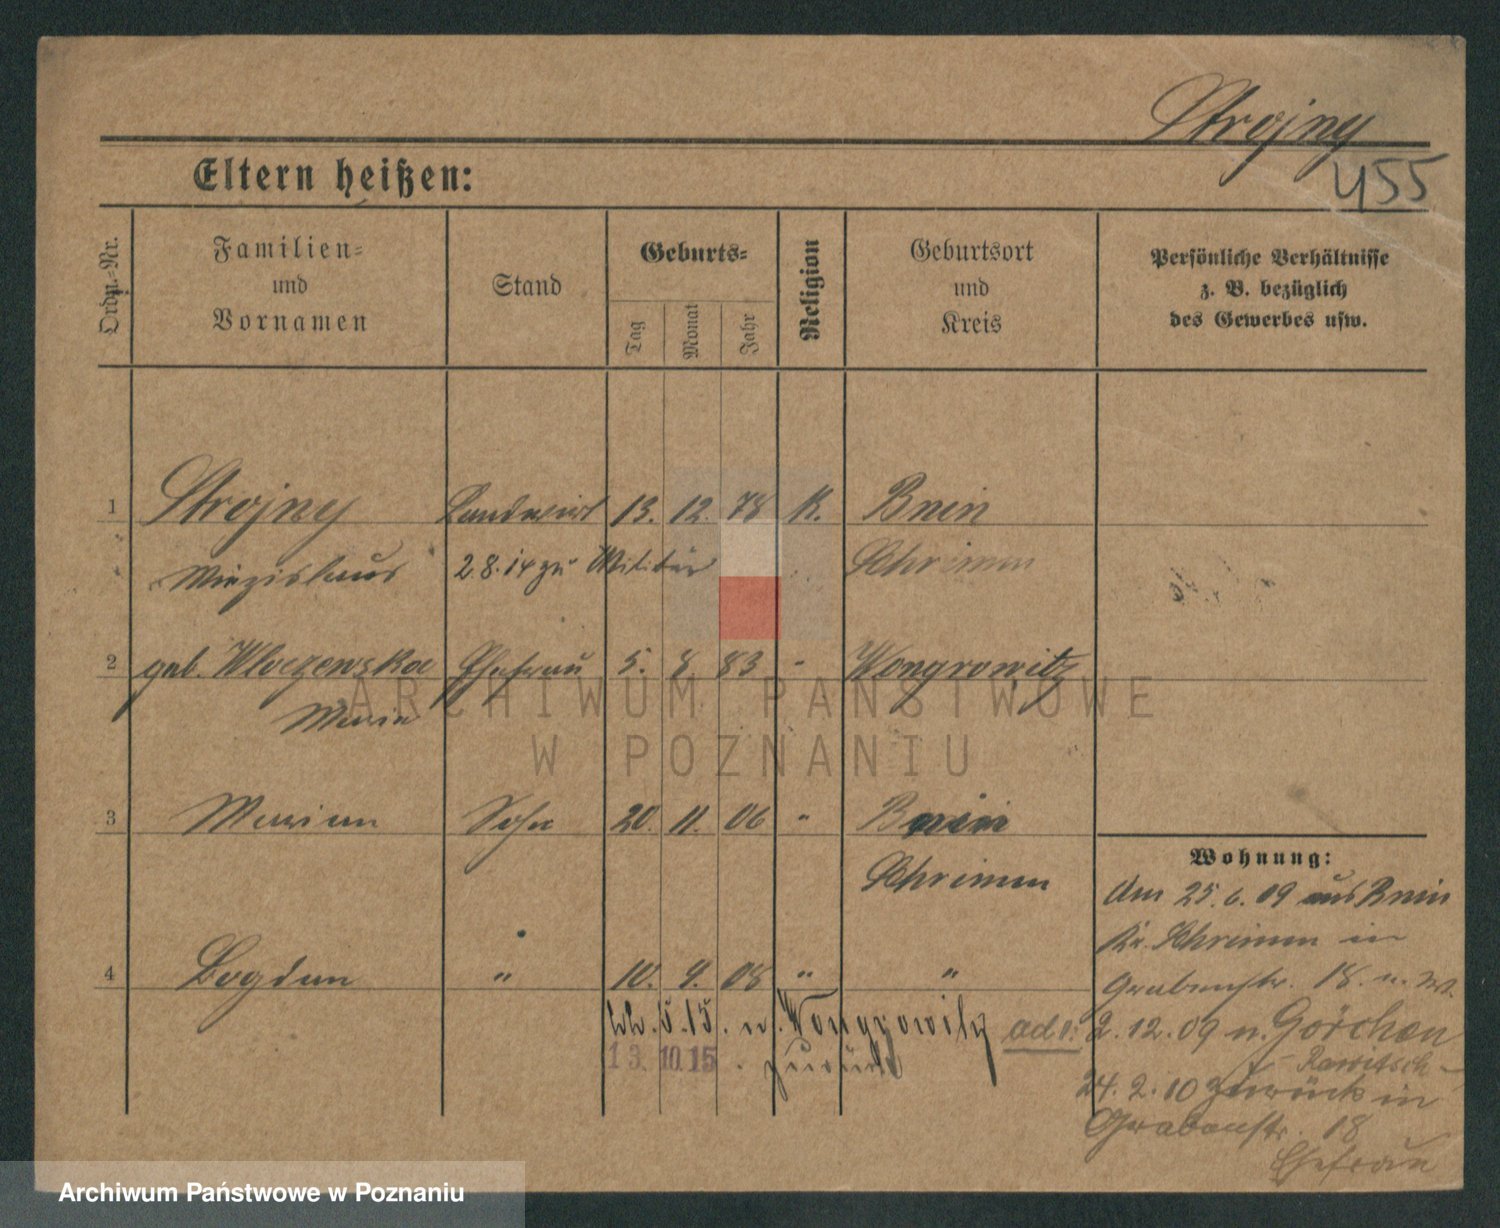 Strojny
455
Eltern heißen:
Ordn.-Nr.
Familien-
und
Vornamen
Stand
Geburts-
Tag
Monat
Jahr
Religion
Geburtsort
und
Kreis
Persönliche Verhältnisse
z. B. bezüglich
des Gewerbes usw.
1 Strojny Landwirt 13. 12. 78 K. Bnin
Miezislaus 2.8.14 zu Militär Schrimm
2 geb. Wloczewska Ehefrau 5. 8 83 " Wongrowitz
Maria
ARCHIWUM PAŃSTWOWE
W POZNANIU
3 Marian Sohn 20. 11. 06 " Bnin
Schrimm
4 Bogdan " 10. 9. 08 " "
22.5.15. n. Wongrowitz
13. 10. 15. zurück
Wohnung:
Am 25.6.09 aus Bnin
Kr. Schrimm in
Grabenstr. 18. u. W.
ad 1: 2.12.09 n. Görchen
Rawitsch
24.2.10 zurück in
Grabenstr. 18
Ehefrau
Archiwum Państwowe w Poznaniu